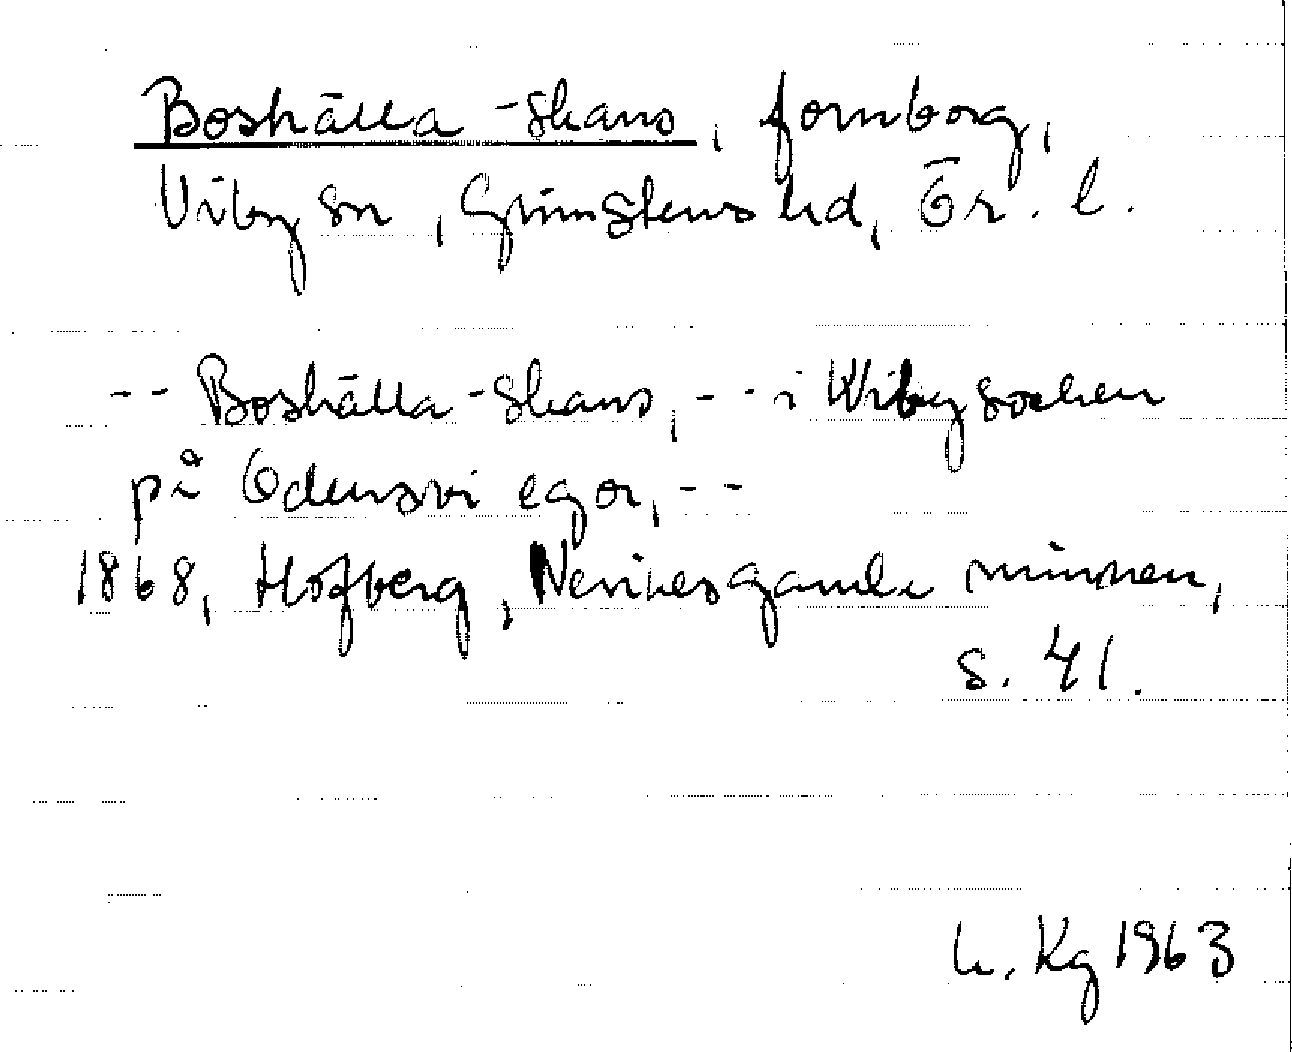 Boshälla-skans, fornborg,
Viby sn, Grimstens hd, Ör. l.
-- Boshälla-skans, -- i Wiby socken
på Odensvi egor, --
1868, Hofberg, Nerikes gamla minnen,
s. 41.
L. Kg 1963